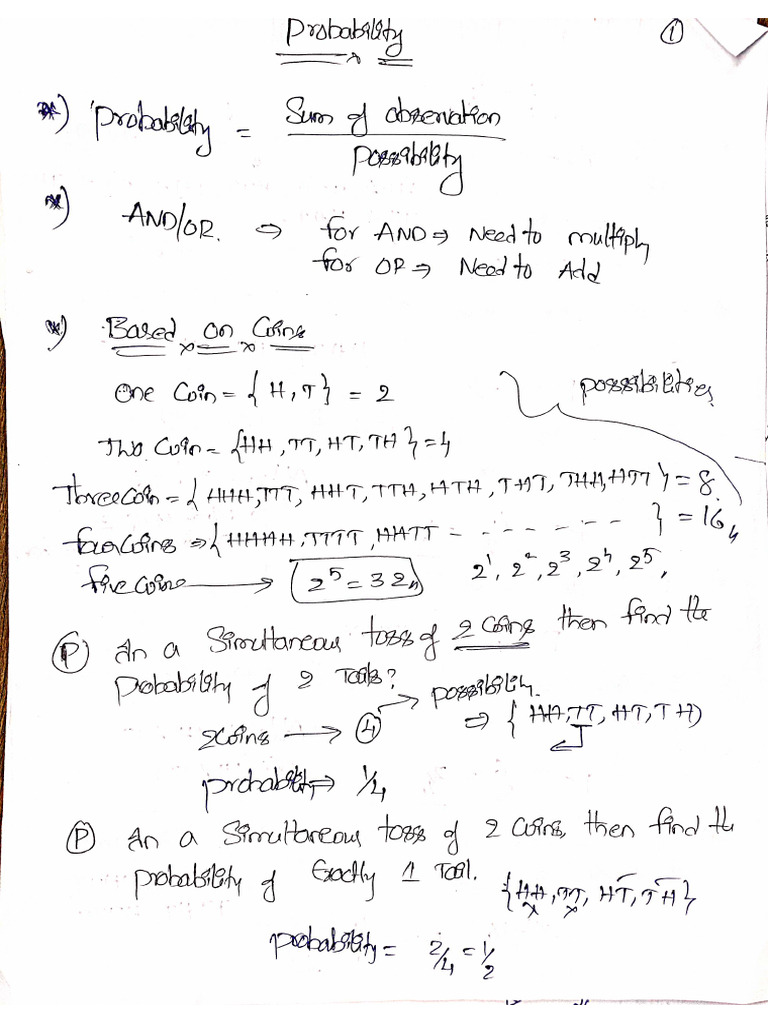 Probability
①
*) Probability = Sum of observation / Possibility
*) AND/OR. ⇒ for AND ⇒ Need to multiply
for OR ⇒ Need to Add
*) Based on Coins
One Coin = { H, T } = 2
possibilities
Two Coin = {HH, TT, HT, TH } = 4
Three coin = { HHH, TTT, HHT, TTH, HTH, THT, THH, HTT } = 8
four coins ⇒ { HHHH, TTTT, HHTT - - - - - - - } = 16
five coins → 2^5 = 32 2^1, 2^2, 2^3, 2^4, 2^5,
(P) In a Simultaneous toss of 2 Coins then find the
probability of 2 Tails?
2coins → (4) → possibility. ⇒ { HH, TT, HT, TH }
probability → 1/4
(P) In a Simultaneous toss of 2 Coins, then find the
probability of Exactly 1 Tail.
{HH, TT, HT, TH}
probability = 2/4 = 1/2